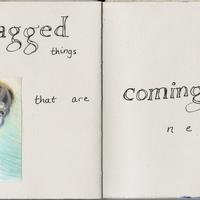 agged
things
that are
coming
n e